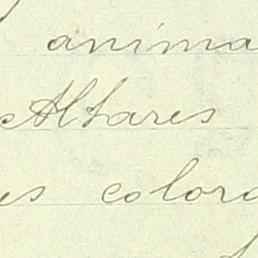 anima
Altares
es colora